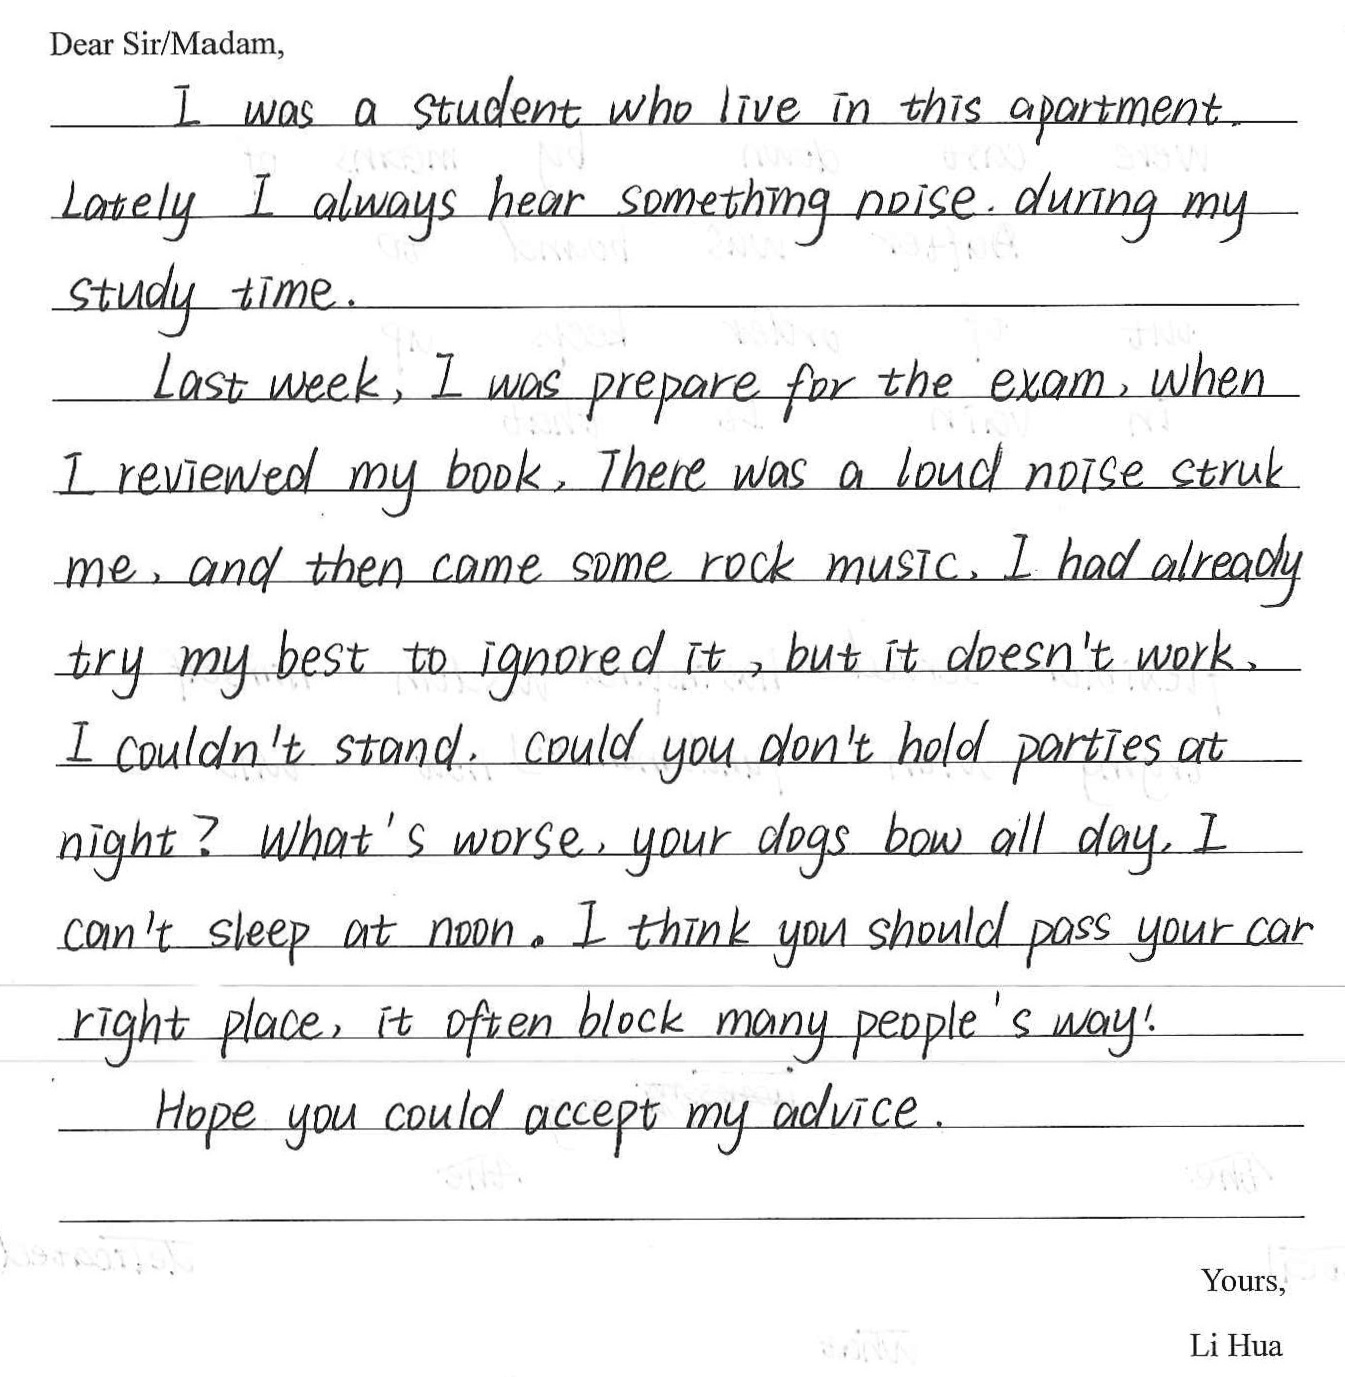 Dear Sir/Madam,
I was a student who live in this apartment.
Lately I always hear something noise. during my
study time.
Last week, I was prepare for the exam, when
I reviewed my book, There was a loud noise struk
me, and then came some rock music, I had already
try my best to ignored it, but it doesn't work,
I couldn't stand. Could you don't hold parties at
night? What's worse, your dogs bow all day, I
can't sleep at noon. I think you should pass your car
right place, it often block many people's way!
Hope you could accept my advice.
Yours,
Li Hua